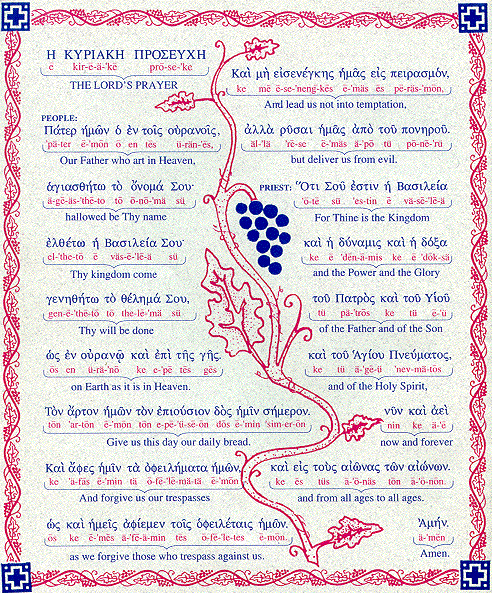 Η ΚΥΡΙΑΚΗ ΠΡΟΣΕΥΧΗ
ē kir-ē-ä-'kē prō-se-'kē
THE LORD'S PRAYER
PEOPLE:
Πάτερ ἡμῶν ὁ ἐν τοῖς οὐρανοῖς,
'pä-ter ē-'mōn ō en tēs ü-rän-'ēs,
Our Father who art in Heaven,
ἁγιασθήτω τὸ ὄνομά Σου·
ä-gē-äs-'thē-tō tō ō-nō-'mä sü
hallowed be Thy name
ἐλθέτω ἡ Βασιλεία Σου·
el-'the-tō ē väs-ē-'lē-ä sü
Thy kingdom come
γενηθήτω τὸ θέλημά Σου,
gen-ē-'thē-tō tō the-lē-'mä sü
Thy will be done
ὡς ἐν οὐρανῷ καὶ ἐπὶ τῆς γῆς.
ōs en ü-rä-'nō ke e-'pē tēs gēs
on Earth as it is in Heaven.
Τὸν ἄρτον ἡμῶν τὸν ἐπιούσιον δὸς ἡμῖν σήμερον.
tōn 'är-tōn ē-'mōn tōn e-pē-'ü-sē-ōn dōs ē-'mēn 'sim-er-ōn
Give us this day our daily bread.
Καὶ ἄφες ἡμῖν τὰ ὀφειλήματα ἡμῶν,
ke 'ä-fes ē-'mēn tä ō-fē-'lē-mä-tä ē-'mōn
And forgive us our trespasses
ὡς καὶ ἡμεῖς ἀφίεμεν τοῖς ὀφειλέταις ἡμῶν.
ōs ke ē-'mēs ä-'fē-ä-min tēs ō-fē-'le-tes ē-mōn.
as we forgive those who trespass against us.
Καὶ μὴ εἰσενέγκης ἡμᾶς εἰς πειρασμόν,
ke mē ē-se-'neng-kēs ē-'mäs ēs pē-räs-'mōn,
And lead us not into temptation,
ἀλλὰ ρῦσαι ἡμᾶς ἀπὸ τοῦ πονηροῦ.
äl-'lä 'rē-se ē-'mäs ä-'pō tü pō-nē-'rü
but deliver us from evil.
PRIEST: Ὅτι Σοῦ ἐστιν ἡ Βασιλεία
'ō-tē sü 'es-tin ē vä-sē-'lē-ä
For Thine is the Kingdom
καὶ ἡ δύναμις καὶ ἡ δόξα
ke ē 'dēn-ä-mis ke ē 'dōk-sä
and the Power and the Glory
τοῦ Πατρὸς καὶ τοῦ Υἱοῦ
tü pä-'trōs ke tü ē-'ü
of the Father and of the Son
καὶ τοῦ Ἁγίου Πνεύματος,
ke tü ä-'gē-ü 'nev-mä-tōs
and of the Holy Spirit,
νῦν καὶ ἀεὶ
nin ke ä-'ē
now and forever
καὶ εἰς τοὺς αἰῶνας τῶν αἰώνων.
ke ēs tüs ä-'ō-näs tōn ä-'ō-nōn.
and from all ages to all ages.
Ἀμήν.
ä-'mēn
Amen.